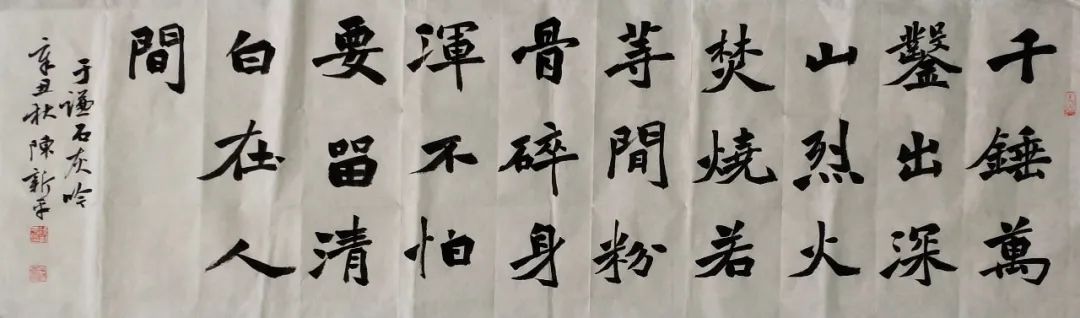 千錘萬
鑿出深
山烈火
焚燒若
等閒粉
骨碎身
渾不怕
要留清
白在人
間
于謙石灰吟
辛丑秋陳新平